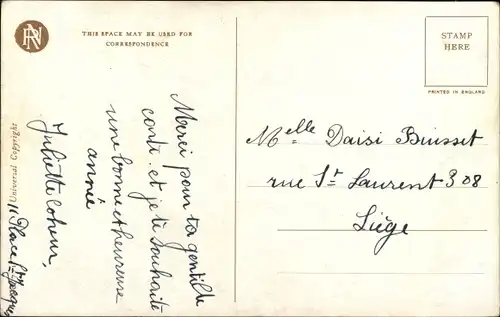 RN
THIS SPACE MAY BE USED FOR
CORRESPONDENCE
STAMP
HERE
PRINTED IN ENGLAND
Merci pour ta gentille
carte. et je te souhaite
une bonne et heureuse
année
Juliette Cohen.
11 Place St Jacques
Universal Copyright
Melle Daisi Buisset
rue St Laurent 308
Liège